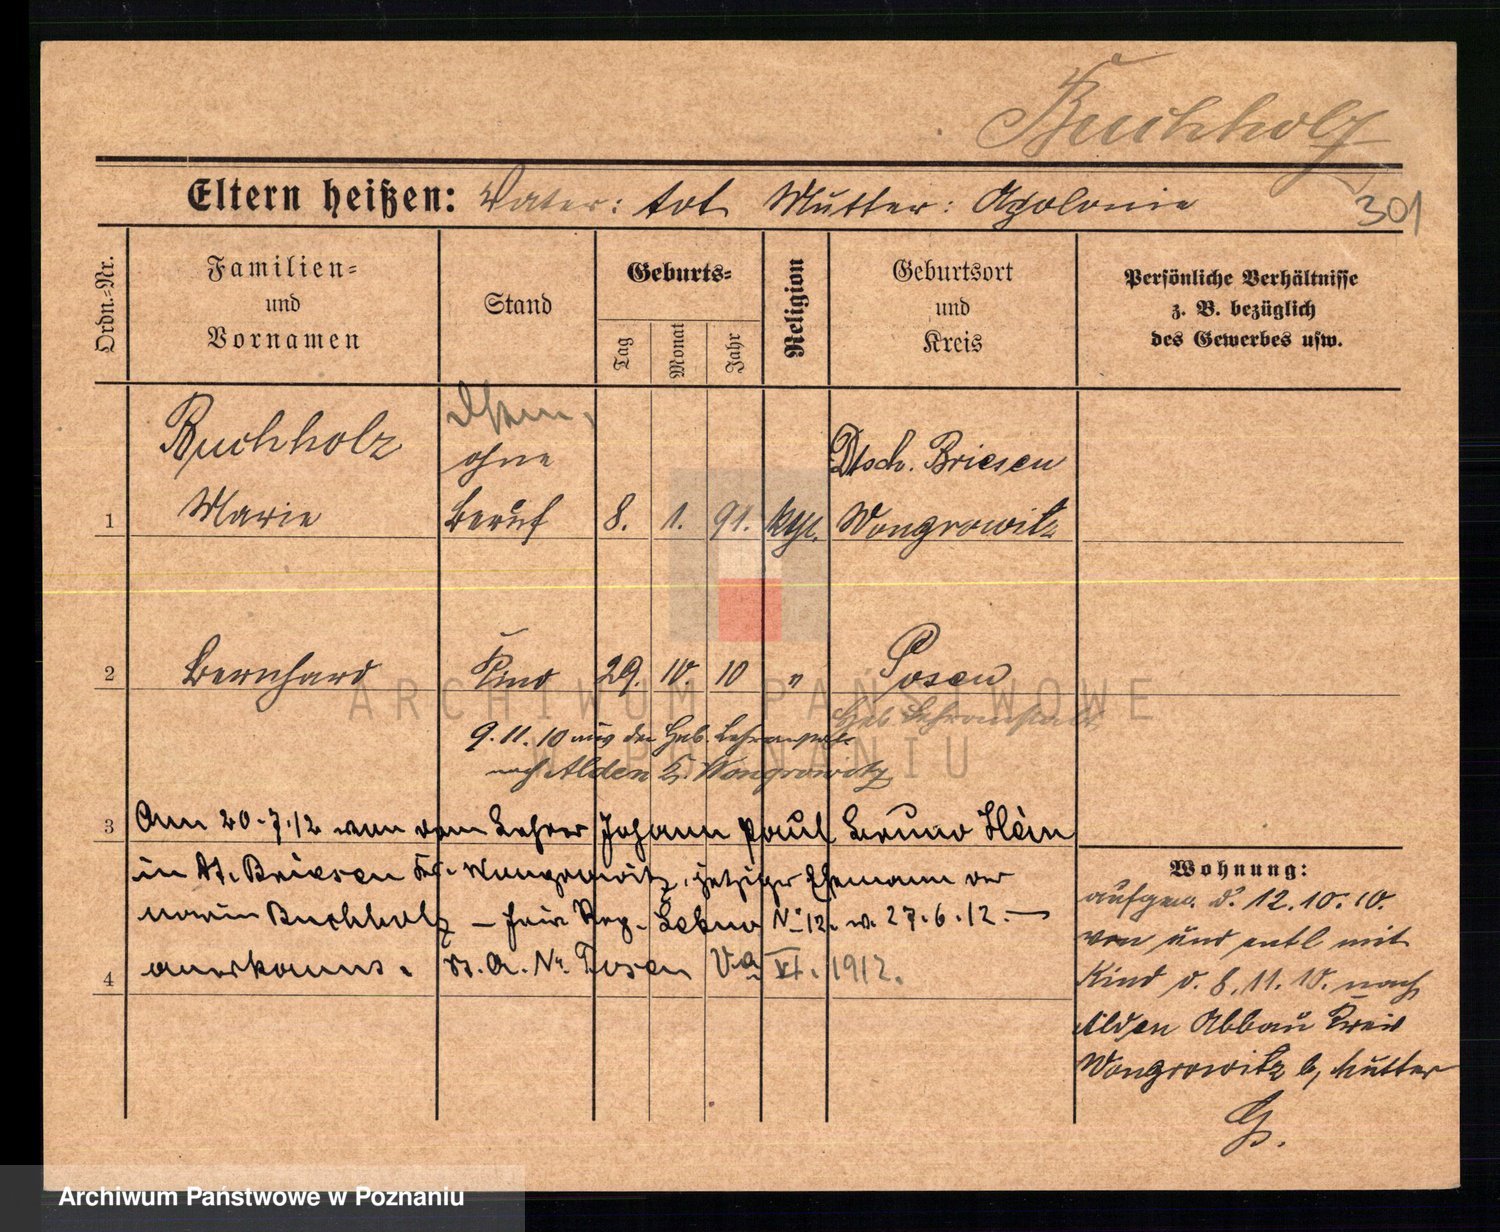 Buchholz
301
Eltern heißen: Vater: tot Mutter: Apolonie
Ordn.-Nr.
Familien-
und
Vornamen
Stand
Geburts-
Tag
Monat
Jahr
Religion
Geburtsort
und
Kreis
Persönliche Verhältnisse
z. B. bezüglich
des Gewerbes usw.
Buchholz
ohne
1 Marie Beruf 8. 1. 91. kth.
Dtsch. Briesen
Wongrowitz
2 Bernhard Kind 29. 10 10 " Posen
Heb. Lehranstalt
9.11.10 aus der Heb. Lehranstalt
nach Alden K. Wongrowitz
3 Am 20.7.12 von dem Lehrer Johann Paul Bruno
in Dt. Briesen Krs. Wongrowitz, jetziger Ehemann der
Buchholz – Reg. Lekno No 12. v. 27.6.12. –
4 anerkannt. St. A. Posen VI. 1912.
Wohnung:
aufgen. d. 12.10.10.
von und entl mit
Kind d. 8.11.10. nach
Alden Abbau Kreis
Wongrowitz b, Mutter
G.
ARCHIWUM PAŃSTWOWE
W POZNANIU
Archiwum Państwowe w Poznaniu